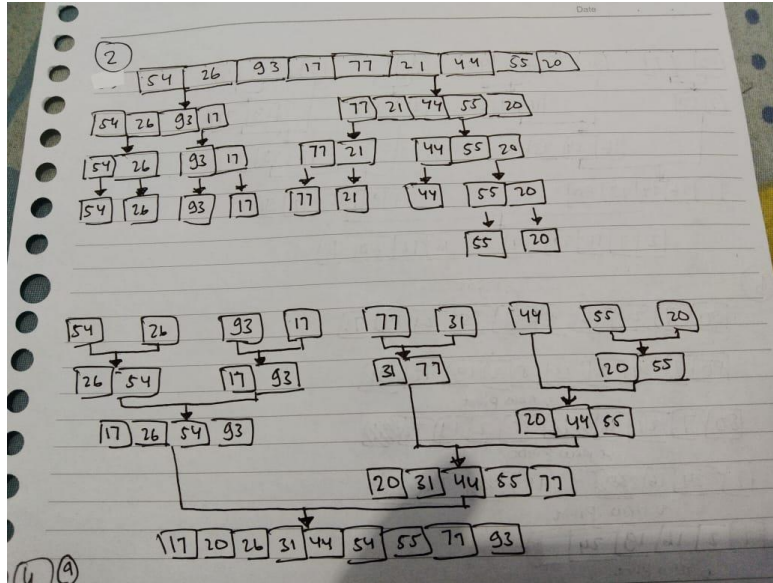 Date
2
54 26 93 17 77 21 44 55 20
54 26 93 17 77 21 44 55 20
54 26 93 17 77 21 44 55 20
54 26 93 17 77 21 44 55 20
55 20
54 26 93 17 77 31 44 55 20
26 54 17 93 31 77 20 55
17 26 54 93 20 44 55
20 31 44 55 77
17 20 26 31 44 54 55 77 93
4 9